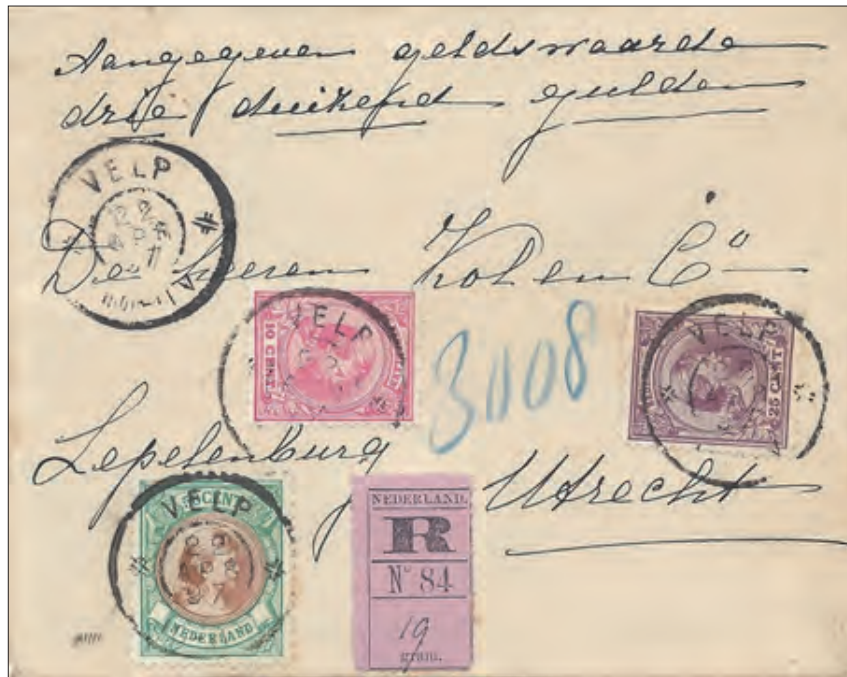 Aangegeven geldswaarde
drie duizend gulden
VELP
De heeren Kol en Co
VELP
10 CENT
3008
VELP
25 CENT
Lepelenburg
Utrecht
50 CENT
VELP
NEDERLAND
NEDERLAND.
R
No 84
19
gram.